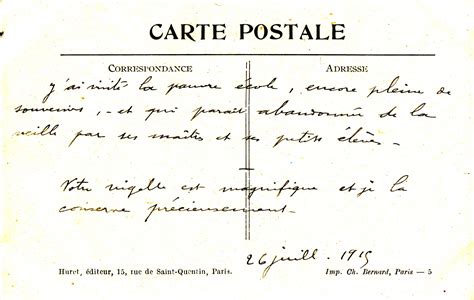 CARTE POSTALE
CORRESPONDANCE
ADRESSE
J'ai visité la pauvre école, encore pleine de
souvenirs, - et qui paraît abandonnée de la
veille par ses maîtres et ses petits élèves -
Votre est magnifique et je la
conserve précieusement -
26 juill. 1915
Huret, éditeur, 15, rue de Saint-Quentin, Paris.
Imp. Ch. Bernard, Paris — 5